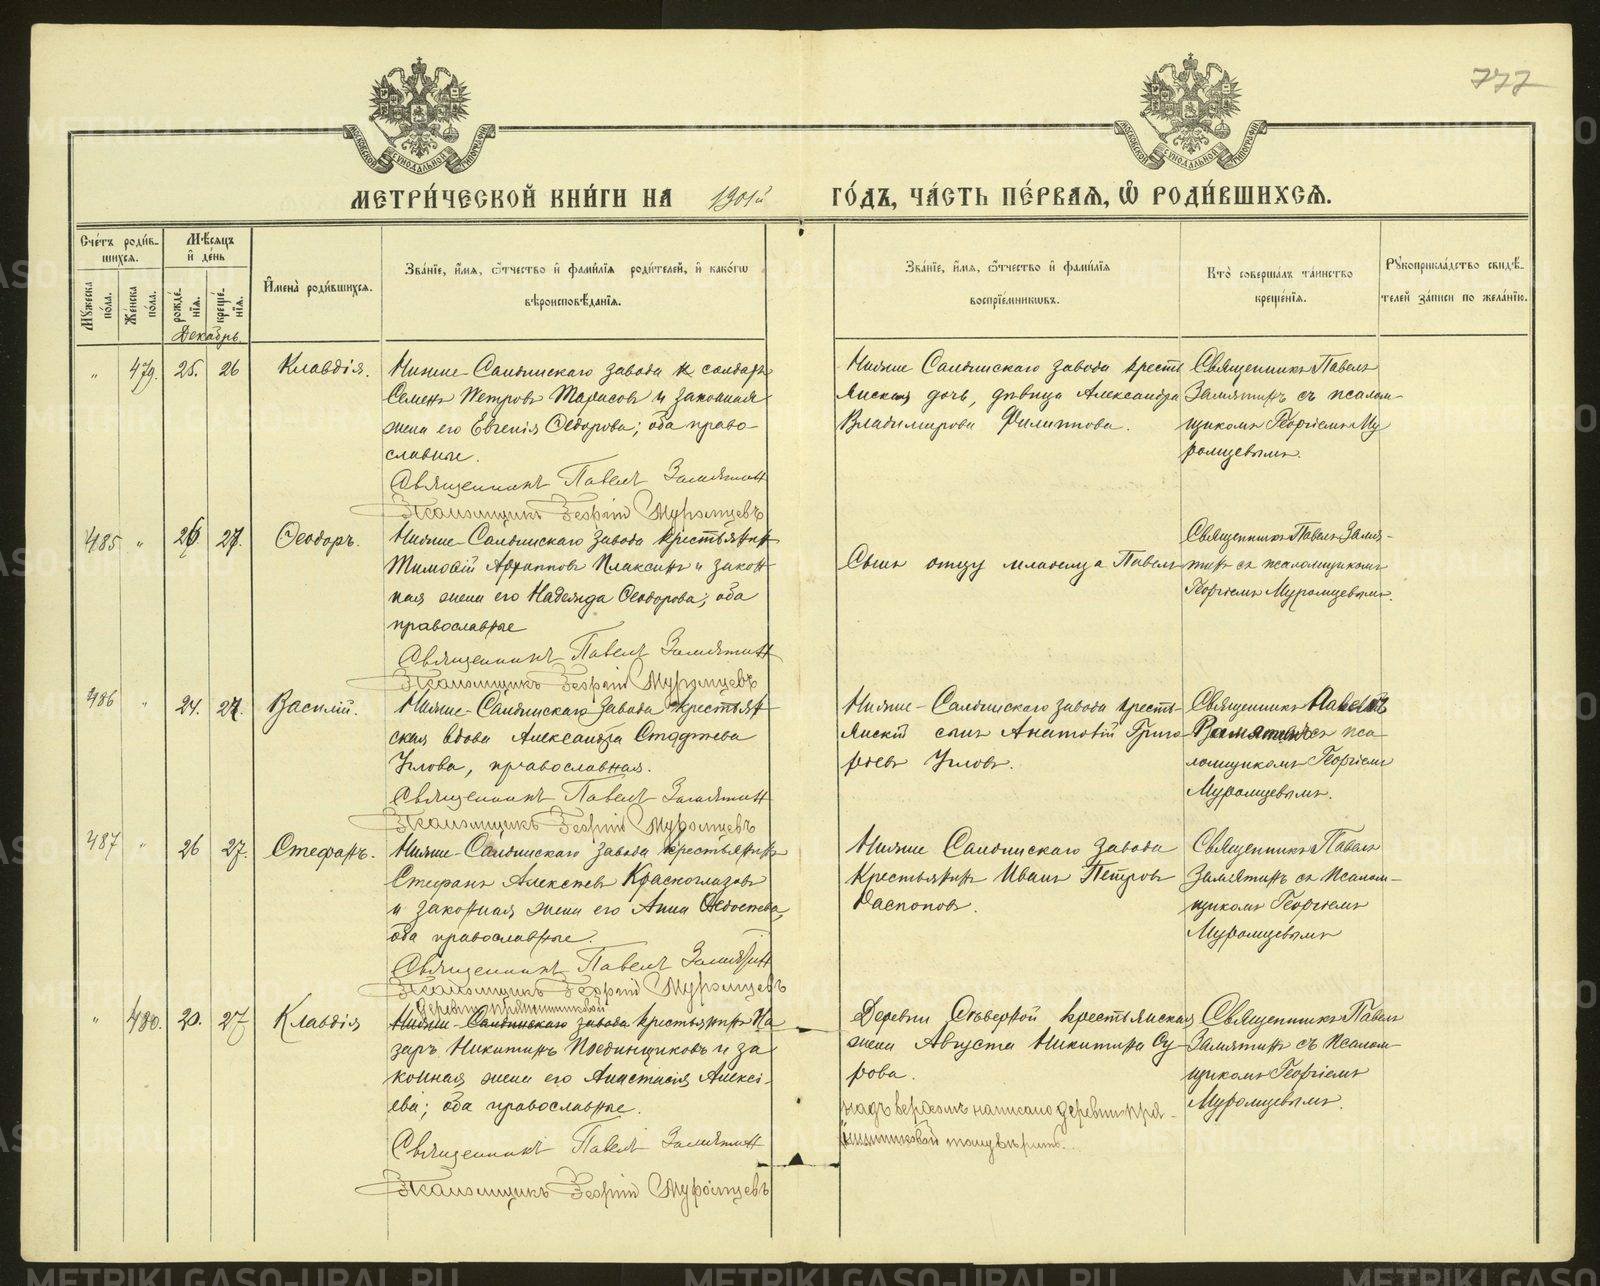 777
МОСКОВСКОЙ СѴНОДАЛЬНОЙ ТИПОГРАФІИ
МОСКОВСКОЙ СѴНОДАЛЬНОЙ ТИПОГРАФІИ
МЕТРИ́ЧЕСКОЙ КНИ́ГИ НА 1901й ГО́ДЪ, ЧА́СТЬ ПЕ́РВАѦ, Ѿ РОДИ́ВШИХСѦ.
Сче́тъ роди́в-
шихся.
Мѣ́сяцъ
и де́нь
Мꙋ́жеска по́ла.
Же́нска по́ла.
рожде́-нїѧ.
креще́-нїѧ.
Декабрь
И҆мена̀ роди́вшихсѧ.
Зва́нїе, и҆́мѧ, ѻ҆́тчество и҆ фами́лїѧ роди́телей, и҆ како́гѡ
вѣроисповѣ́данїѧ.
Зва́нїе, и҆́мѧ, ѻ҆́тчество и҆ фами́лїѧ
воспрїе́мникѡвъ.
Кто̀ соверша́лъ та́инство
креще́нїѧ.
Рꙋкоприкла́дство свидѣ́-
телей за́писи по жела́нїю.
" 479. 25. 26 Клавдія.
Нижне-Салдинскаго завода солдатъ
Семенъ Петровъ Тарасовъ и законная
жена его Евгенія Ѳедорова; оба право-
славные.
Священникъ Павелъ Замятинъ
Псаломщикъ Георгій Муромцевъ
Нижне Салдинскаго завода кресть
янская дочь, дѣвица Александра
Владимирова Филиппова.
Священникъ Павелъ
Замятинъ съ псалом-
щикомъ Георгіемъ Му
ромцевымъ.
485 " 26 27. Ѳеодоръ.
Нижне-Салдинскаго завода крестьянинъ
Тимоѳій Архиповъ Плаксинъ и закон
ная жена его Надежда Ѳеодорова; оба
православные
Священникъ Павелъ Замятинъ
Псаломщикъ Георгій Муромцевъ
Сынъ отцу младенца Павелъ
Священникъ Павелъ Замя-
тинъ съ псаломщикомъ
Георгіемъ Муромцевымъ.
486 " 24. 27. Василій.
Нижне-Салдинскаго завода крестьян
ская вдова Александра
Углова, православная.
Священникъ Павелъ Замятинъ
Псаломщикъ Георгій Муромцевъ
Нижне-Салдинскаго завода кресть-
янскій сынъ Анатолій Григо
рьевъ Угловъ.
Священникъ Павелъ
Замятинъ съ пса-
ломщикомъ Георгіемъ
Муромцевымъ.
487 " 26 27. Стефанъ.
Нижне-Салдинскаго завода крестьянинъ
Стефанъ Алексѣевъ Красноглазовъ
и законная жена его Анна Ѳедосѣева,
оба православные.
Священникъ Павелъ Замятинъ
Псаломщикъ Георгій Муромцевъ
Нижне Салдинскаго завода
крестьянинъ Иванъ Петровъ
Распоповъ.
Священникъ Павелъ
Замятинъ съ Псалом-
щикомъ Георгіемъ
Муромцевымъ
" 480. 20. 27 Клавдія
деревни Прянишниковой
Нижне-Салдинскаго завода крестьянинъ На
заръ Никитинъ Поединщиковъ и за
конная жена его Анастасія Алексі-
ева; оба православные.
Священникъ Павелъ Замятинъ
Псаломщикъ Георгій Муромцевъ
Деревни крестьянская
жена Августа Никитина Су
рова.
надъ верхомъ написано деревни Пря-
нишниковой тому вѣрить.
Священникъ Павелъ
Замятинъ съ Псалом-
щикомъ Георгіемъ
Муромцевымъ.
METRIKI.GASO-URAL.RU